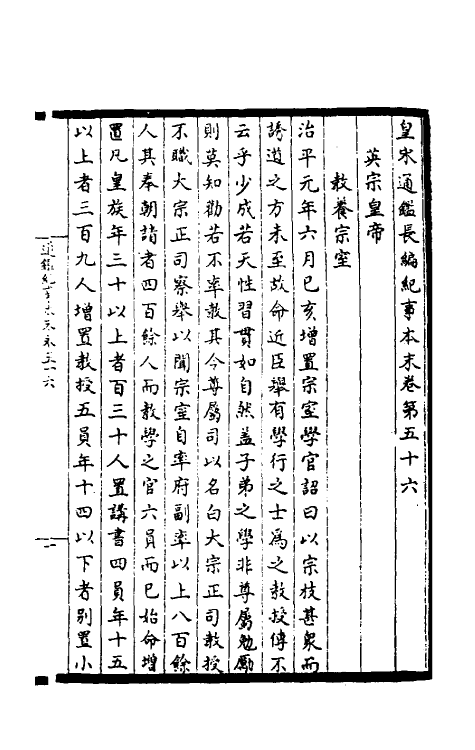 皇宋通鑑長編紀事本末卷第五十六
英宗皇帝
教養宗室
治平元年六月已亥增置宗室學官詔曰以宗枝甚衆而
誘道之方未至故命近臣舉有學行之士爲之教授傳不
云乎少成若天性習貫如自然盖子弟之學非尊屬勉勵
則莫知勸若不率教其令尊屬司以名白大宗正司教授
不職大宗正司察舉以聞宗室自率府副率以上八百餘
人其奉朝請者四百餘人而教學之官六員而巳始命增
置凡皇族年三十以上者百三十人置講書四員年十五
以上者三百九人增置教授五員年十四以下者别置小